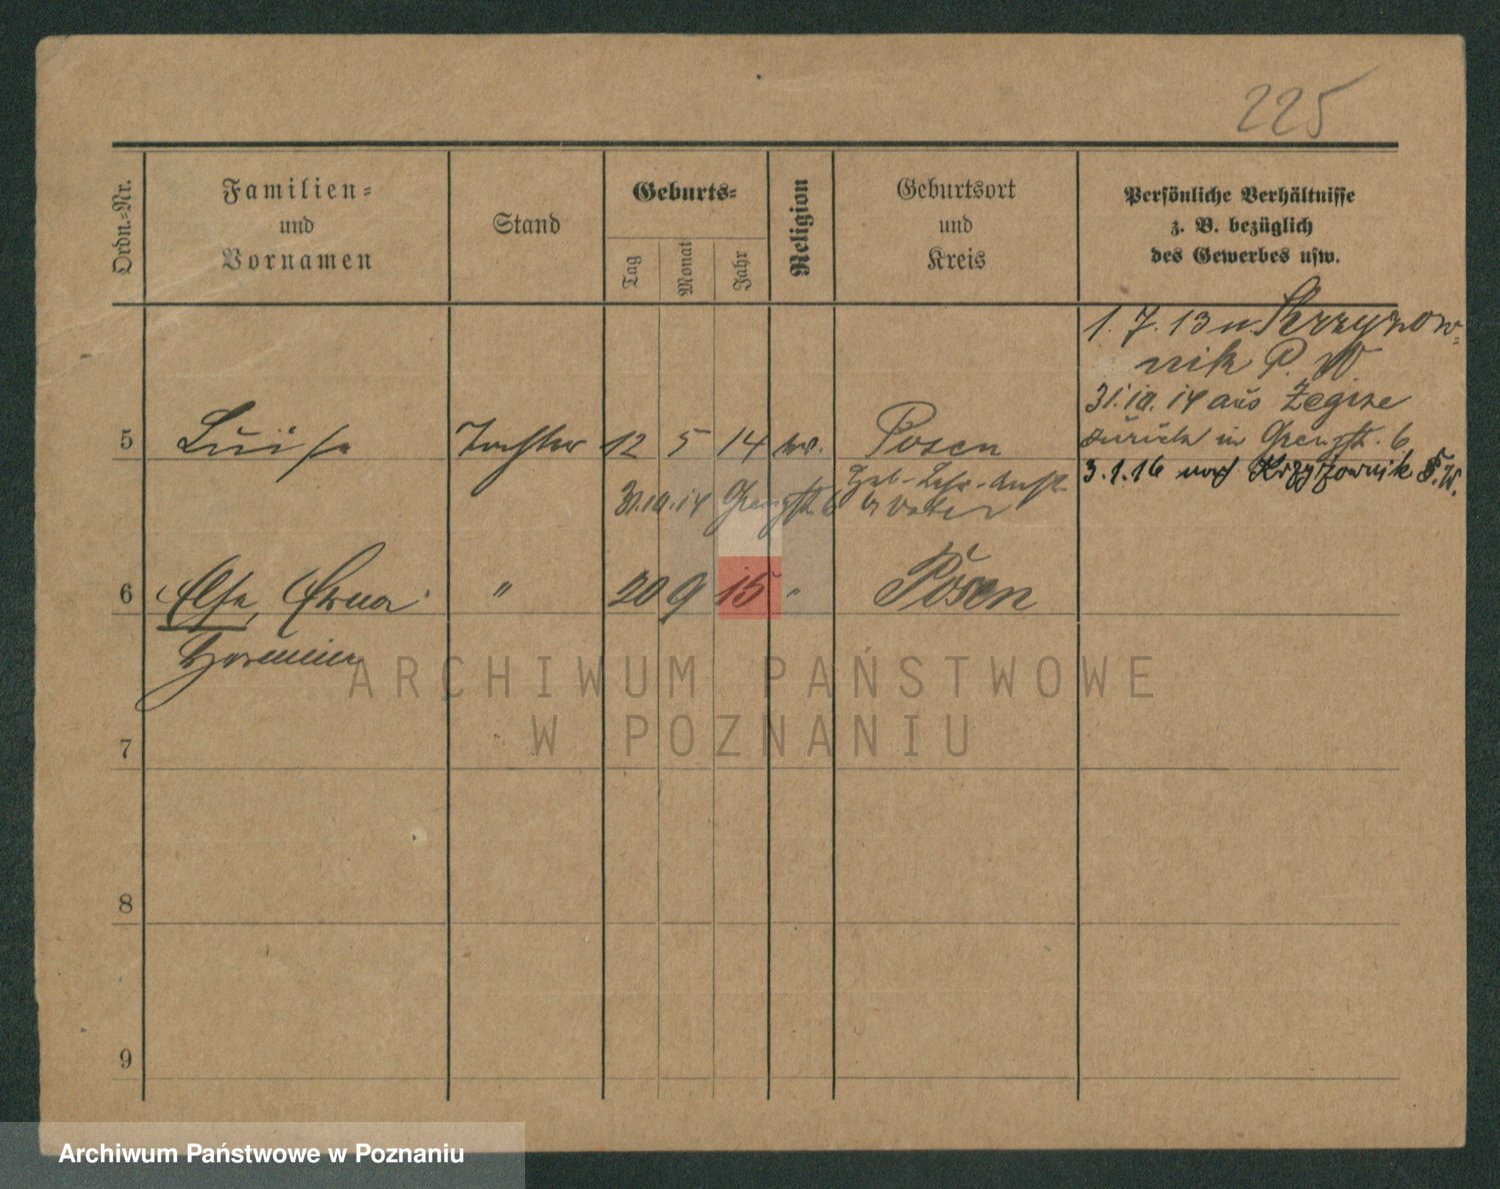 225
Ordn.-Nr.
Familien-
und
Vornamen
Stand
Geburts-
Tag
Monat
Jahr
Religion
Geburtsort
und
Kreis
Persönliche Verhältnisse
z. B. bezüglich
des Gewerbes usw.
1. 7. 13 n. Krzyzow-
nik P. W
31.10.14 aus Zegrze
zurück in Grenzstr. 6
3.1.16 nach Krzyżownik P.W.
5 Luise Tochter 12 5 14 Posen
31.10.14 Grenzstr. 6
Vater
6 Else, Erna " 20 9 15 " Posen
7
8
9
ARCHIWUM PAŃSTWOWE
W POZNANIU
Archiwum Państwowe w Poznaniu